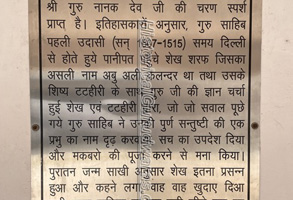 श्री गुरु नानक देव जी की चरण स्पर्श
प्राप्त है। इतिहासकारों अनुसार, गुरु साहिब
पहली उदासी (सन् 1507-1515) समय दिल्ली
से होते हुये पानीपत पहुंचे शेख शरफ जिसका
असली नाम अबु अली कलन्दर था तथा उसके
शिष्य टटहीरी के साथ गुरु जी की ज्ञान चर्चा
हुई शेख एवं टटहीरी द्वारा, जो जो सवाल पूछे
गये गुरु साहिब ने उनकी पुर्ण सन्तुष्टी की एक
प्रभु का नाम दृढ़ करवाया सच का उपदेश दिया
और मकबरो की पूजा करने से मना किया।
पुरातन जन्म साखी अनुसार शेख इतना प्रसन्न
हुआ और कहने लगा वाह वाह खुदाए दिआ